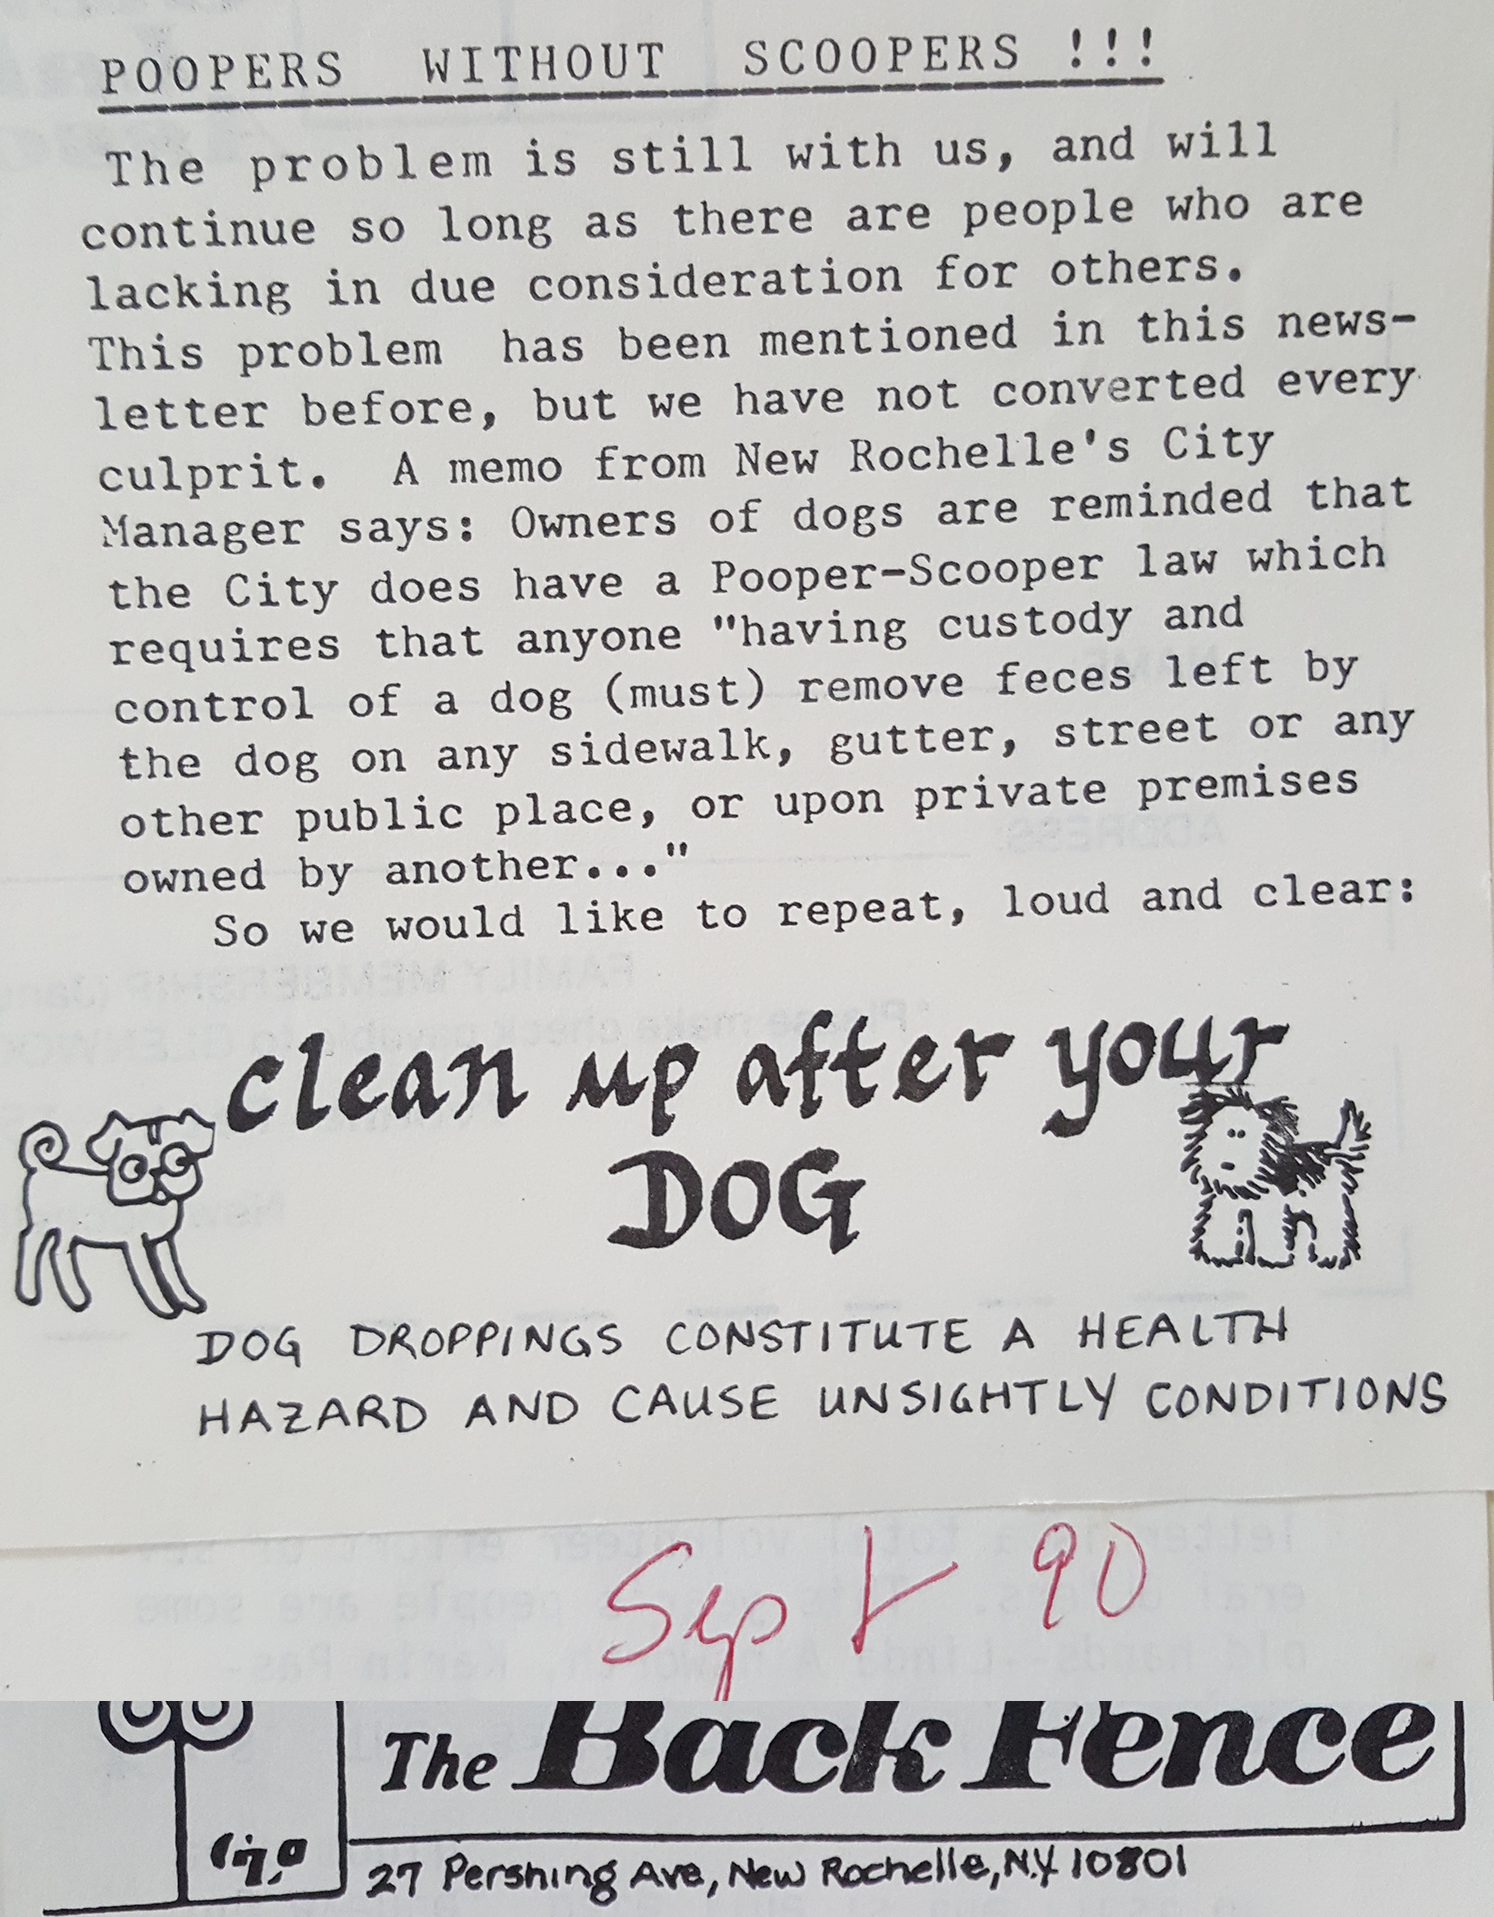 POOPERS WITHOUT SCOOPERS !!!
The problem is still with us, and will
continue so long as there are people who are
lacking in due consideration for others.
This problem has been mentioned in this news-
letter before, but we have not converted every
culprit. A memo from New Rochelle's City
Manager says: Owners of dogs are reminded that
the City does have a Pooper-Scooper law which
requires that anyone "having custody and
control of a dog (must) remove feces left by
the dog on any sidewalk, gutter, street or any
other public place, or upon private premises
owned by another..."
So we would like to repeat, loud and clear:
clean up after your
DOG
DOG DROPPINGS CONSTITUTE A HEALTH
HAZARD AND CAUSE UNSIGHTLY CONDITIONS
Sept 90
The Back Fence
27 Pershing Ave, New Rochelle, N.Y. 10801